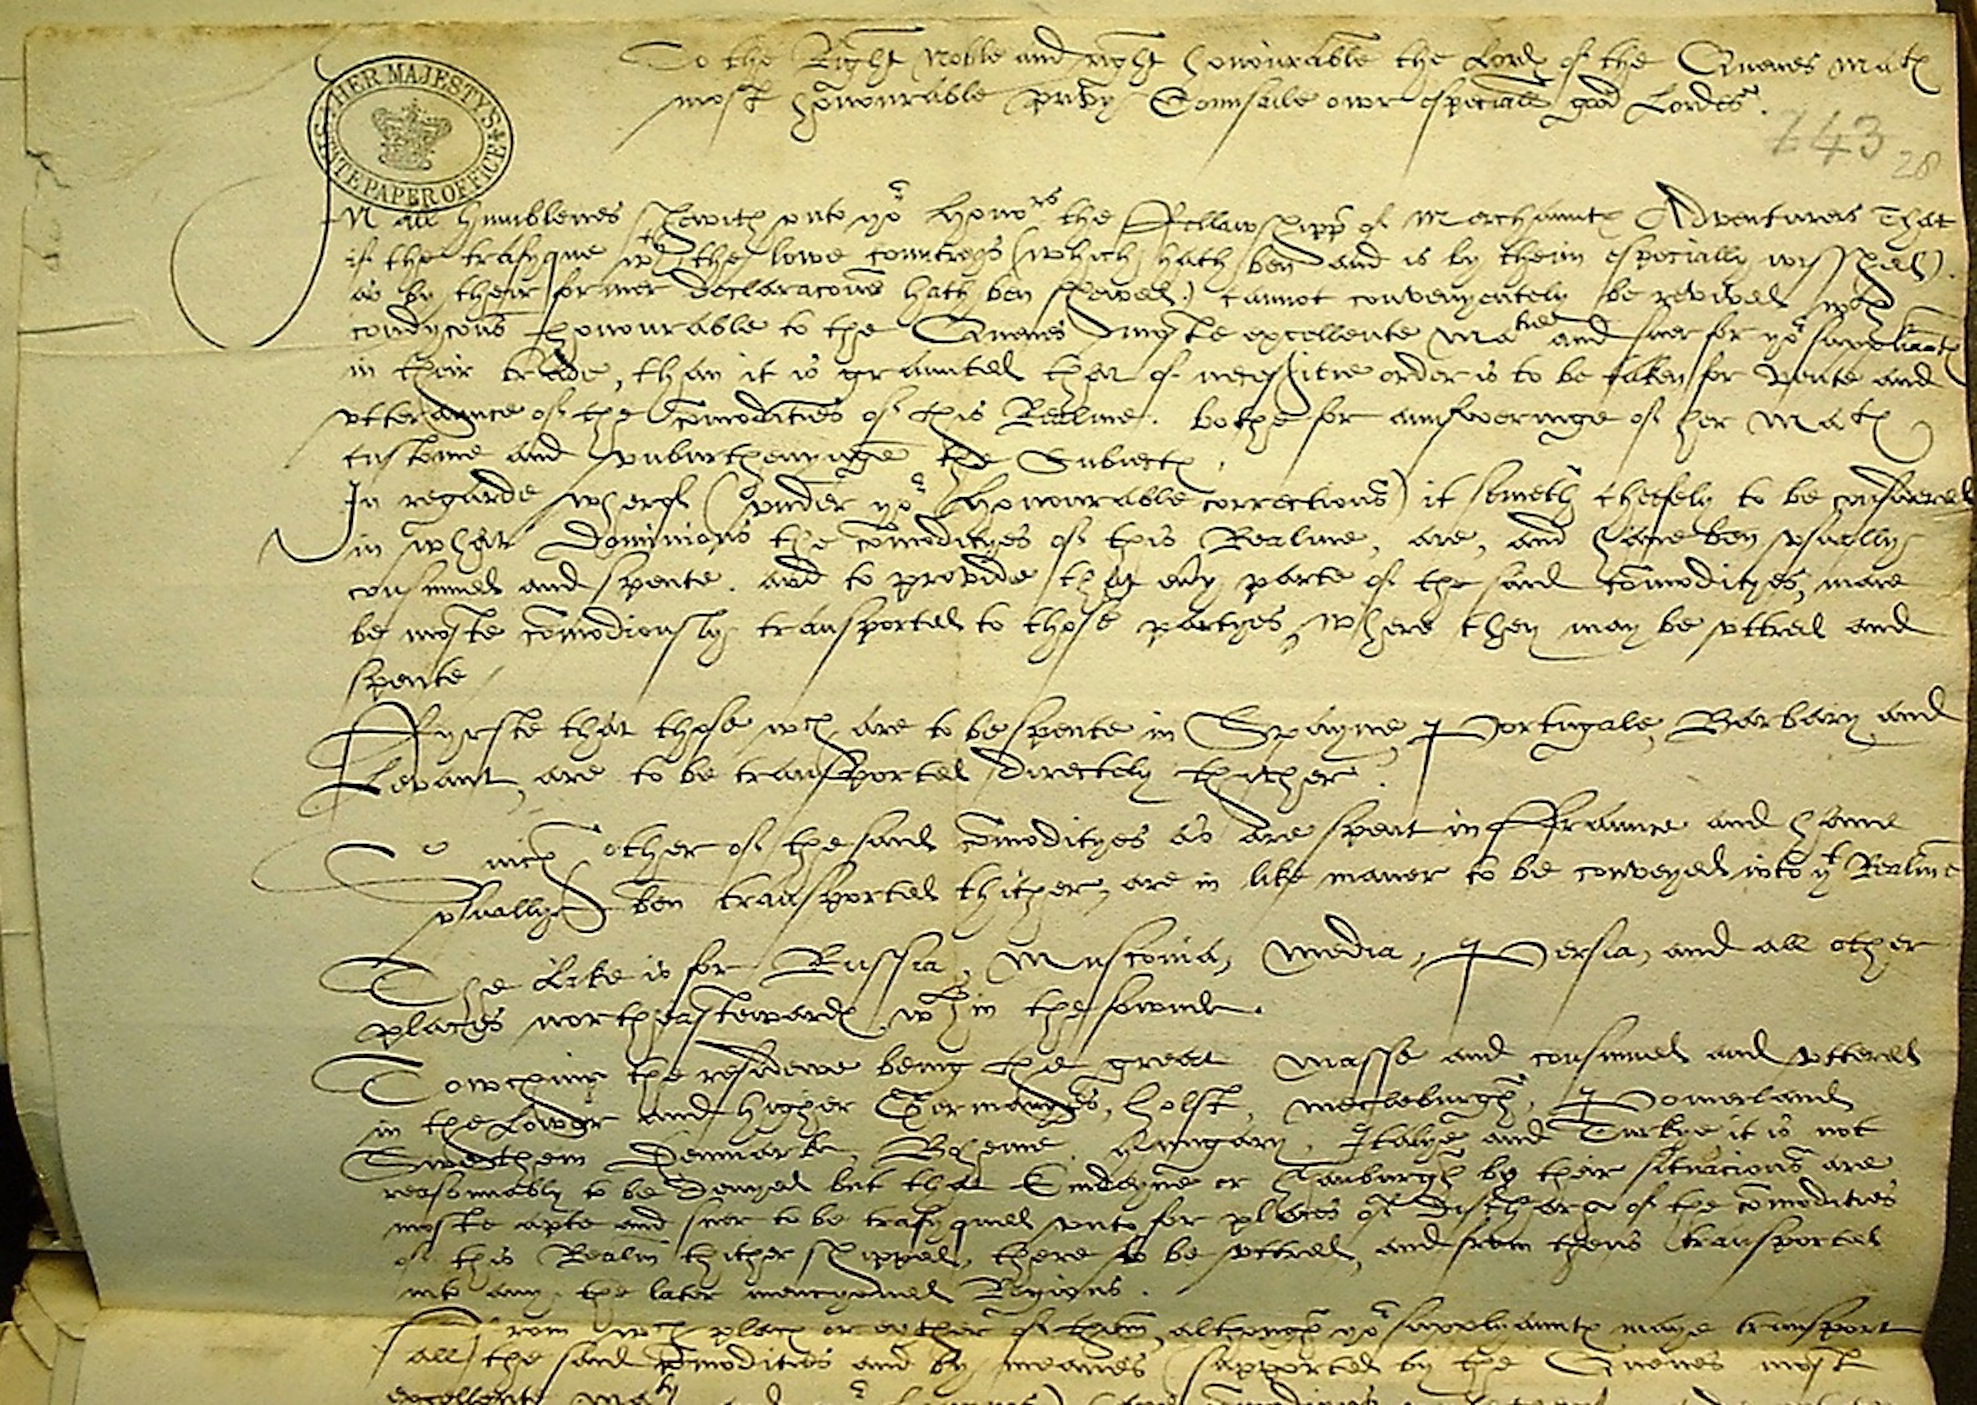 To the Right Noble and right honourable the Lord(es) of the Quenes Mat(es)
most honourable privy Counsaile owr especiall good Lordes.
HER MAJESTY'S
STATE PAPER OFFICE
143
28
In all humblenes shewith unto yor Honors the Fellawshipp of Merchaunt(es) Adventurers That
if the trafyque wth the lowe contreys (which hath ben and is by theim especially wisshed)
as by their former declaracons hath ben shewed) cannot convenyentely be revived wth
condycons honourable to the Quenes moste excellente Matie and suer for yor
in their trade, than it is graunted that of necessitie order is to be taken for vente and
utteraunce of the comodities of this Realme. bothe for aunsweringe of her Mat(es)
custome and unburthenynge the Subiect(es).
In regarde wherof (under yor Honourable corrections) it semeth cheefely to be consydered
in what Dominions the comodityes of this Realme, are, and have ben usually
consumed and spente. and to provide that every parte of the said comodityes, maie
be moste comodiously transported to those partyes, where they may be uttred and
spente
Fyrste that those wch are to be spente in Spayne, Portugale, Barbary and
Levant, are to be transported directely thither.
Such other of the said comodityes as are spent in Fraunce and have
usually ben transported thither, are in like maner to be conveyed into yt Realme
The Like is for Russia, Muscovia, Media, Persia, and all other
places northeastward(es) wthin the sownde.
Towching the residewe being the great masse and consumed and uttered
in the Lower and higher Germanyes, Holst, Mecleburgh, Pomerland
Swethen Denmarke, Boheme, Hungary, Italye and Turkye it is not
reasonnably to be denyed but that Emdeyne or Hamburgh by their situacions are
moste apte and suer to be trafyqued unto for places of discharge of the comodities
of this Realm thither shipped, there to be uttred, and from thens transported
into any the later mencyoned Regions.
From wch place or eyther of them, although yor supplyaunt(es) maye transport
all the said comodities and by meanes supported by the Quenes most
excellente Maty